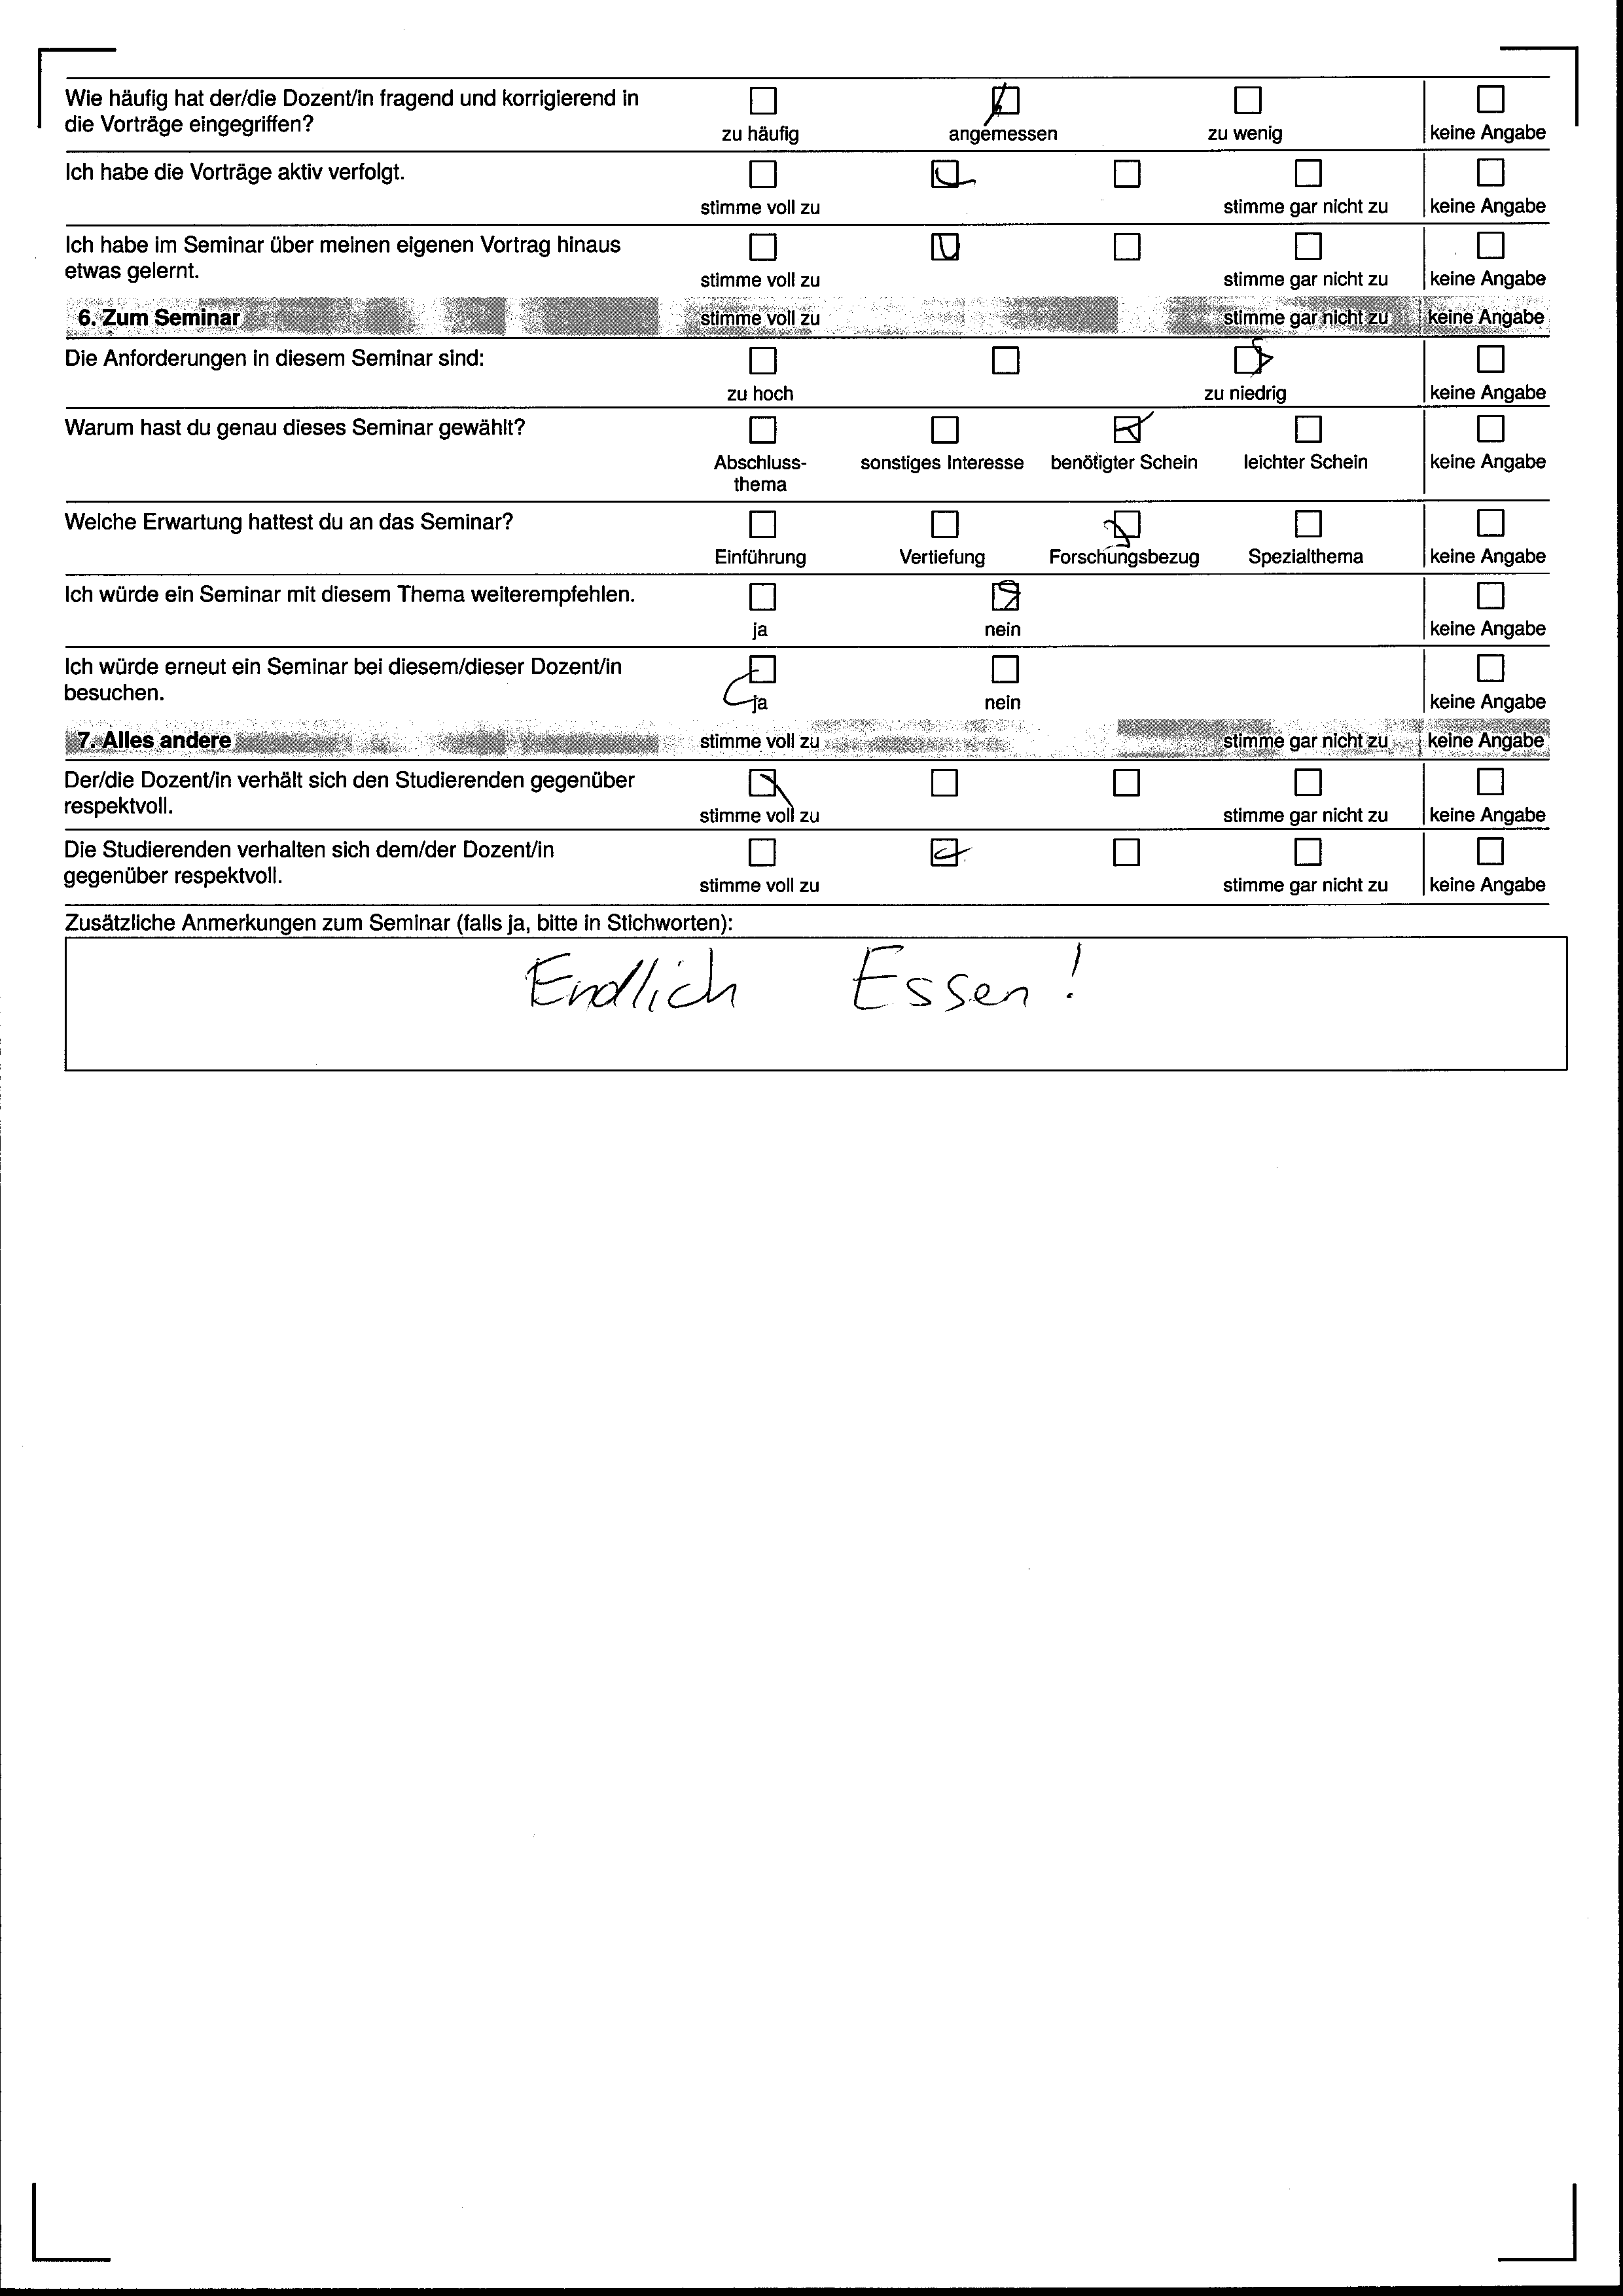 Wie häufig hat der/die Dozent/in fragend und korrigierend in
die Vorträge eingegriffen?
zu häufig angemessen zu wenig keine Angabe
Ich habe die Vorträge aktiv verfolgt.
stimme voll zu stimme gar nicht zu keine Angabe
Ich habe im Seminar über meinen eigenen Vortrag hinaus
etwas gelernt.
stimme voll zu stimme gar nicht zu keine Angabe
6. Zum Seminar stimme voll zu stimme gar nicht zu keine Angabe
Die Anforderungen in diesem Seminar sind:
zu hoch zu niedrig keine Angabe
Warum hast du genau dieses Seminar gewählt?
Abschluss- sonstiges Interesse benötigter Schein leichter Schein keine Angabe
thema
Welche Erwartung hattest du an das Seminar?
Einführung Vertiefung Forschungsbezug Spezialthema keine Angabe
Ich würde ein Seminar mit diesem Thema weiterempfehlen.
ja nein keine Angabe
Ich würde erneut ein Seminar bei diesem/dieser Dozent/in
besuchen.
ja nein keine Angabe
7. Alles andere stimme voll zu stimme gar nicht zu keine Angabe
Der/die Dozent/in verhält sich den Studierenden gegenüber
respektvoll.
stimme voll zu stimme gar nicht zu keine Angabe
Die Studierenden verhalten sich dem/der Dozent/in
gegenüber respektvoll.
stimme voll zu stimme gar nicht zu keine Angabe
Zusätzliche Anmerkungen zum Seminar (falls ja, bitte in Stichworten):
Endlich Essen!